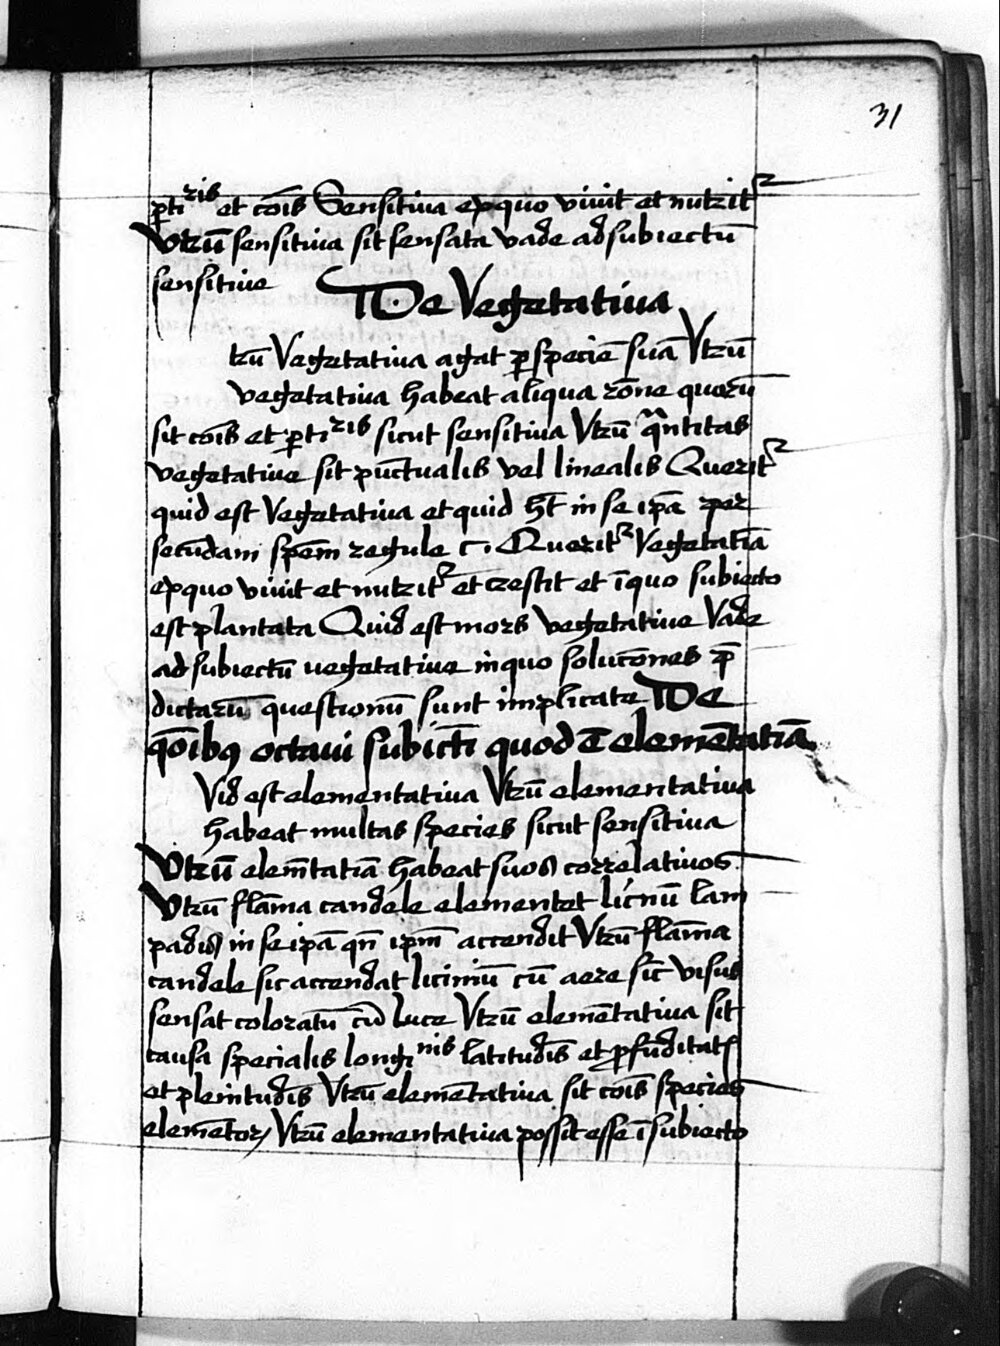 31
ꝑtiris et cõis Sensitiua ex quo viuit et nutritr
Vtrũ sensitiua sit sensata vade ad subiectũ
sensitiue De Vegetatiua
trũ Vegetatiua agat ꝑ speciẽ suã Vtrũ
vegetatiua habeat aliqua rõne quorũ
sit cõis et ꝑtiris sicut sensitiua Vtrũ qantitas
vegetatiue sit pũctualis vel linealis Queritr
quid est Vegetatiua et quid ht̃ in se ip̃a per
secũdam sp̃em regule c. Queritr Vegetatĩa
ex quo viuit et nutritr et crestit et ĩ quo subiecto
est plantata Quid est mors vegetatiue Vade
ad subiectũ uegetatiue in quo solucõnes p̃
dictarũ questionũ sunt implicate De
qõibꝰ octaui subict̃i quod ẽ elemẽtatiã
Vid est elementatiua Vtrũ elementatiua
habeat multas species sicut sensitiua
Vtrũ elem̃tatiã habeat suos correlatiuos
Vtrũ flãma candele elementet licinũ lam
padis in se ipã qñ ipm̃ accendit Vtrũ flãma
candele sic accendat liciniũ cũ aere sic̃ visus
sensat coloratũ cũ luce Vtrũ elemẽtatiua sit
causa specialis longinis latitudĩs et ꝓfũditatꝭ
et plenitudĩs Vtrũ elemẽtatiua sit cõis species
elemẽtoꝝ Vtrũ elementatiua possit esse ĩ subiecto